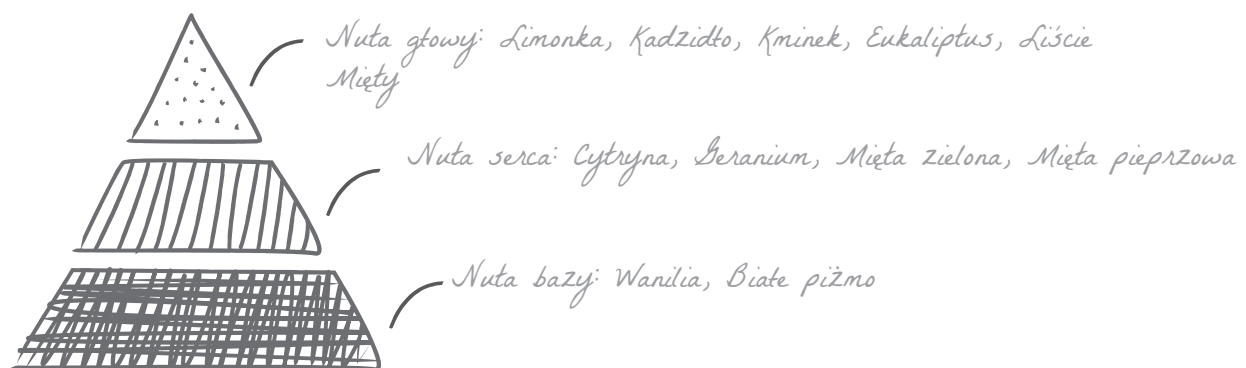 Nuta głowy: Limonka, Kadzidło, Kminek, Eukaliptus, Liście
Mięty
Nuta serca: Cytryna, Geranium, Mięta zielona, Mięta pieprzowa
Nuta bazy: Wanilia, Białe piżmo